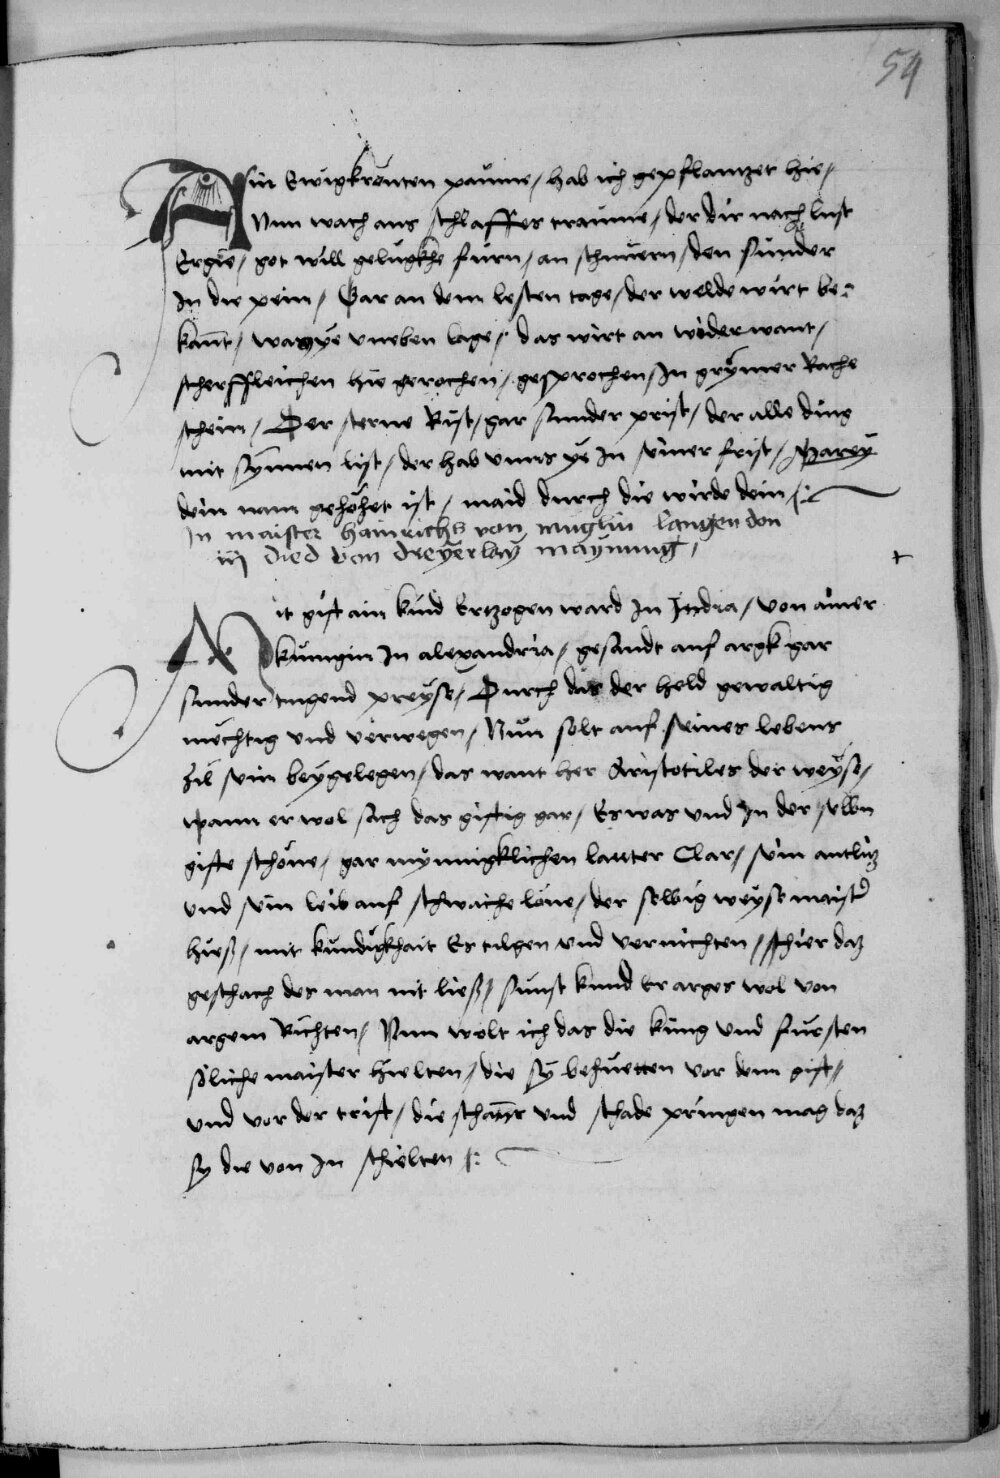 54
Ain Ewigkronten paume / hab ich gepflantzet hie /
Nun wach aus schlaffes traume / der dir nach lust
Ergie / got will gelugkhe furn / an schnuern / den sunder
In die pein / Gar an dem lesten tage / der welde wirt be-
kant / waz ye uneben lage / das wirt an widerwant /
scherffleichen hie gerochen / gesprochen / In grymer Rache
schein / Der sterne Rist / gar sunder prist / der alle ding
mit synnen list / der hab unns ye In seiner frist / Marey
dein nam gehohet ist / maid durch die wirde dein /:
In maister hainrichs von muglin langen don
iij Lied von dreyerlay maynung /
Mit gift ain kind Ertzogen ward In India / von ainer
kunngin In alexandria / gesandt auf argk gar
sunder tugend preyse / Durch das der held gewaltig
mechtig und verwegen / Nun solt auf seines lebens
zil sein beygelegen / das want her Aristotiles der weyse /
wann er wol sach das giftig gar / Es was und In der selbn
gifte schone / gar mynnigklichen lautter Clar / sein antlitz
und sein leib auf schwache lone / der selbig weyse maister
hiess / mit kundigkhait Es tilgen und vernichten / schier daz
geschach des man nit liess / sunst kund Er arges wol von
argem Richten / Nun wolt ich das die kung und fursten
soliche maister hielten / die sy behuetten vor dem gift /
und vor der trift / die schannt und schade pringen mag daz
sy die von In schielten /: